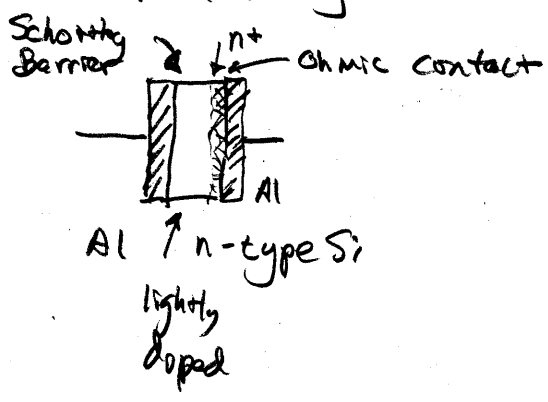 Schottky
Barrier
n+
Ohmic contact
Al
Al
n-type Si
lightly
doped